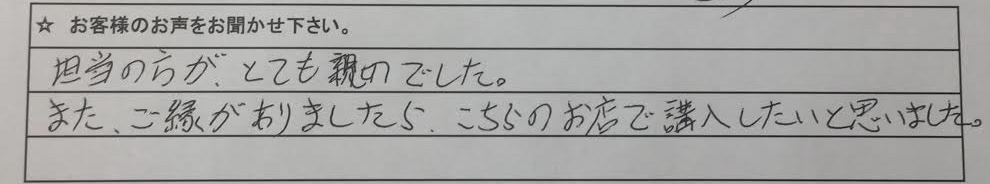 ☆ お客様のお声をお聞かせ下さい。
担当の方が、とても親切でした。
また、ご縁がありましたら、こちらのお店で講入したいと思いました。